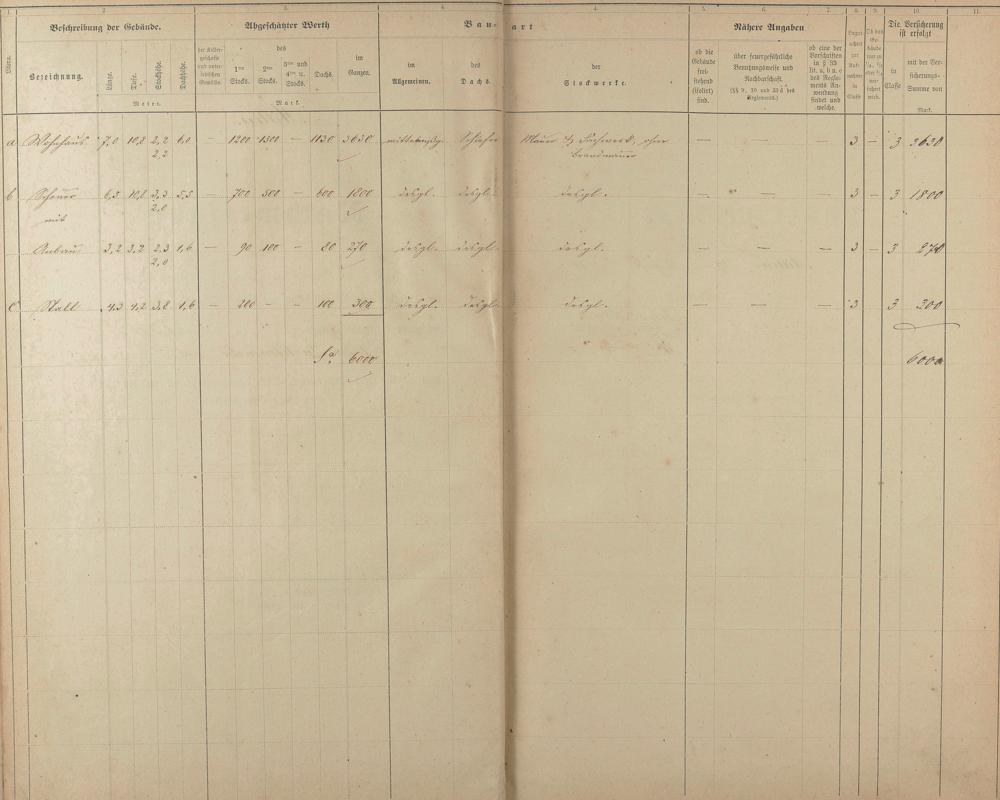 1. 2. 3. 4. 4. 5. 6. 7. 8. 9. 10. 11.
Beschreibung der Gebäude. Abgeschätzter Werth Bau- art Nähere Angaben Die Versicherung ist erfolgt
Bezeichnung. Länge. Tiefe. Stockhöhe. Dachhöhe.
Meter.
der Kellergeschosse und unterirdischen Gewölbe.
des
1ten Stocks. 2ten Stocks. 3ten und 4ten u. Stocks. Dachs.
im Ganzen.
Mark.
im Allgemeinen. des Dachs. der Stockwerke.
ob die Gebäude freistehend (isolirt) sind.
über feuergefährliche Benutzungsweise und Nachbarschaft.
(§§ 9, 10 und 33 d des Reglements.)
ob eine der Vorschriften in § 33 lit. a, b u. c des Reglements Anwendung findet und welche.
in Classe
mit der Versicherungs-Summe von
Mark.
a Wohnhaus 7,0 10,2 2,2 6,0 — 1200 1300 — 1130 3630 Schiefer Mauer u. Fachwerk, ohne — 3 — 3 3630
2,2 Brandmauer
b Scheuer 6,5 10,2 3,3 5,5 — 700 500 — 600 1800 desgl. desgl. desgl. — — 3 — 3 1800
mit 2,0
Anbau 3,2 3,2 2,3 1,6 — 90 100 — 80 270 desgl. desgl. desgl. — — — 3 — 3 270
2,0
c Stall 4,3 4,2 3,2 1,6 — 200 — — 100 300 desgl. desgl. desgl. — — — 3 — 3 300
Sa. 6000 6000